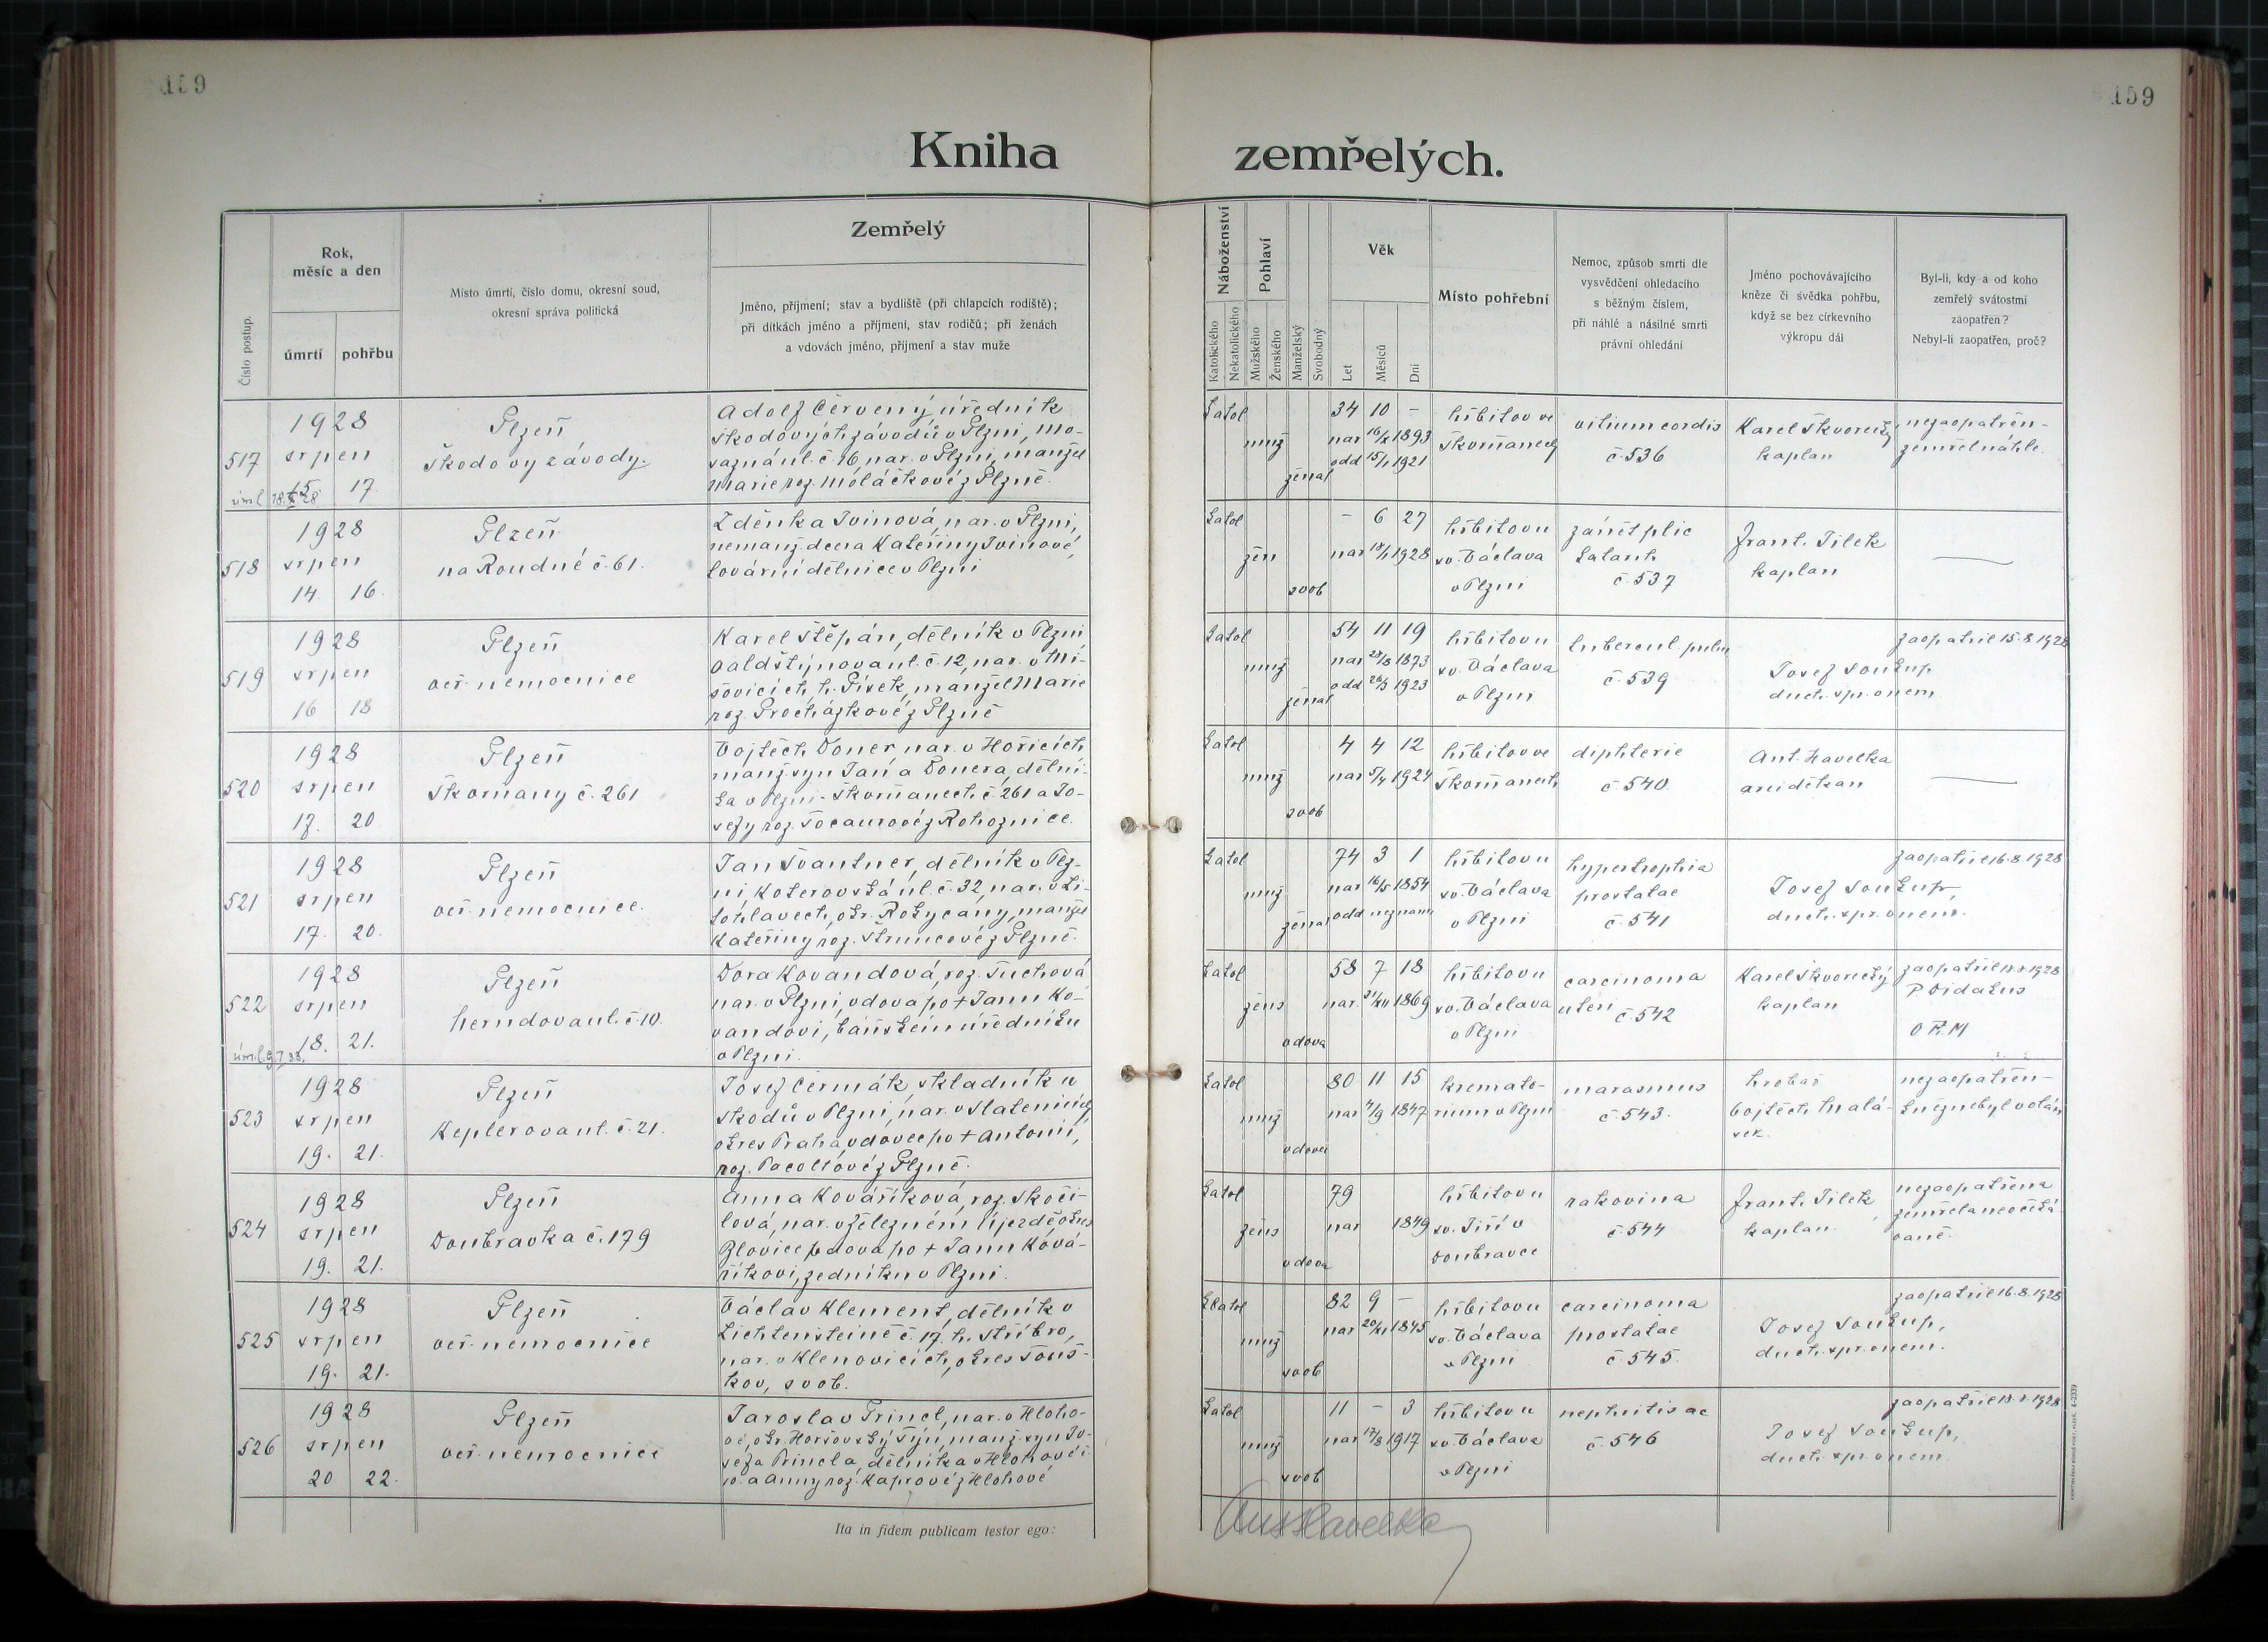 159
159
Kniha zemřelých.
Číslo postup.
Rok,
měsíc a den
úmrtí
pohřbu
Místo úmrtí, číslo domu, okresní soud,
okresní správa politická
Zemřelý
Jméno, příjmení; stav a bydliště (při chlapcích rodiště);
při dítkách jméno a příjmení, stav rodičů; při ženách
a vdovách jméno, příjmení a stav muže
Náboženství
Katolického
Nekatolického
Pohlaví
Mužského
Ženského
Manželský
Svobodný
Věk
Let
Měsíců
Dní
Místo pohřební
Nemoc, způsob smrti dle
vysvědčení ohledacího
s běžným číslem,
při náhlé a násilné smrti
právní ohledání
Jméno pochovávajícího
kněze či svědka pohřbu,
když se bez církevního
výkropu dál
Byl-li, kdy a od koho
zemřelý svátostmi
zaopatřen?
Nebyl-li zaopatřen, proč?
517
1928
srpen
15 17.
Plzeň
Škodovy závody.
Adolf Červený, úředník
Škodových závodů v Plzni, Mo-
zná ul. č. 16, nar. v Plzni, manžel
Marie roz. Moláčkové z Plzně.
katol
muž
ženat
34 10 –
nar 16/X 1893
odd 15/1 1921
hřbitov ve
Škvrňanech
vitium cordis
č. 536
Karel Škvorecký
kaplan
nezaopatřen –
zemřel náhle.
518
1928
srpen
14. 16.
Plzeň
na Roudné č. 61.
Zděnka Ivinová, nar. v Plzni,
nemanž. dcera Kateřiny Ivinové,
tovární dělnice v Plzni
katol
žen
svob
– 6 27
nar 18/1 1928
hřbitov u
sv. Václava
v Plzni
zánět plic
č. 537
Frant. Jílek
kaplan
519
1928
srpen
16 18
Plzeň
veř. nemocnice
Karel Štěpán, dělník v Plzni
Valdštýnova ul. č. 12, nar. v Mi-
rovicích, h. Písek, manžel Marie
roz. Procházkové z Plzně
katol
muž
ženat
54 11 19
nar 28/8 1873
odd 26/3 1923
hřbitov u
sv. Václava
v Plzni
tubercul. pulm
č. 539
Josef Soukup
duch. spr. v nem.
zaopatřil 15.8.1928
520
1928
srpen
17. 20
Plzeň
Škvrňany č. 261
Vojtěch Doner nar. v Hořicích
manž. syn Jana Donera, dělní-
ka v Plzni-Škvrňanech č. 261 a Jo-
sefy roz. Tocaurové z Rohoznice.
katol
muž
svob
4 4 12
nar 5/4 1924
hřbitov ve
Škvrňanech
diphterie
č. 540
Ant. Havelka
arciděkan
521
1928
srpen
17. 20.
Plzeň
veř. nemocnice.
Jan Švantner, dělník v Plz-
ni, Koterovská ul. č. 32, nar. v Li-
tohlavech, okr. Rokycany, manžel
Kateřiny roz. Štruncové z Plzně.
katol
muž
ženat
74 3 1
nar 16/5 1854
odd neznam
hřbitov u
sv. Václava
v Plzni
hypertrophia
prostatae
č. 541
Josef Soukup,
duch. spr. v nem.
zaopatřil 16.8.1928
522
1928
srpen
18. 21.
Plzeň
Herndova ul. č. 10.
Dora Kovandová, roz. Suchová
nar. v Plzni, vdova po + Janu Ko-
vandovi, báňském úředníku
v Plzni.
katol
žens
vdova
58 7 18
nar. 31/XII 1869
hřbitov u
sv. Václava
v Plzni
carcinoma
uteri
č. 542
Karel Škvorecký
kaplan
zaopatřil 18.8.1928
P. Vidatus
O F. M
523
1928
srpen
19. 21.
Plzeň
Keplerova ul. č. 21.
Josef Čermák, skladník u
Škodů v Plzni, nar. v Statenicích
okres Praha, vdovec po + Antonii,
roz. Pacoltové z Plzně.
katol
muž
vdovec
80 11 15
nar 4/9 1847
kremato-
rium v Plzni
marasmus
č. 543.
hrobař
Vojtěch Halá-
sek.
nezaopatřen –
kněz nebyl volán
524
1928
srpen
19. 21.
Plzeň
Doubravka č. 179
Anna Kováříková, roz. Skoči-
lová, nar. v Železném Újezdě okres
Blovice, vdova po + Janu Ková-
říkovi, zedníku v Plzni.
katol
žens
vdova
79
nar 1849
hřbitov u
sv. Jiří v
Doubravce
rakovina
č. 544
Frant. Jílek
kaplan.
nezaopatřena
zemřela neočeká-
vaně.
525
1928
srpen
19. 21.
Plzeň
veř. nemocnice
Václav Klement, dělník v
Lichtenšteině č. 17. h. Stříbro,
nar. v Klenovicích, okres Touš-
kov, svob.
katol
muž
svob
82 9 –
nar 20/XI 1845
hřbitov u
sv. Václava
v Plzni
carcinoma
prostatae
č. 545.
Josef Soukup,
duch. spr. v nem.
zaopatřil 16.8.1928
526
1928
srpen
20 22.
Plzeň
veř. nemocnice
Jaroslav Princl, nar. v Hloho-
vé, okr. Horšovský Týn, manž. syn Jo-
sefa Princla, dělníka v Hlohové č.
10. a Anny roz. Kaprové z Hlohové
katol
muž
svob
11 – 3
nar 17/8 1917
hřbitov u
sv. Václava
v Plzni
nephritis ac
č. 546
Josef Soukup,
duch. spr. v nem.
zaopatřil 18.8.1928
Ita in fidem publicam testor ego:
Ant Havelka